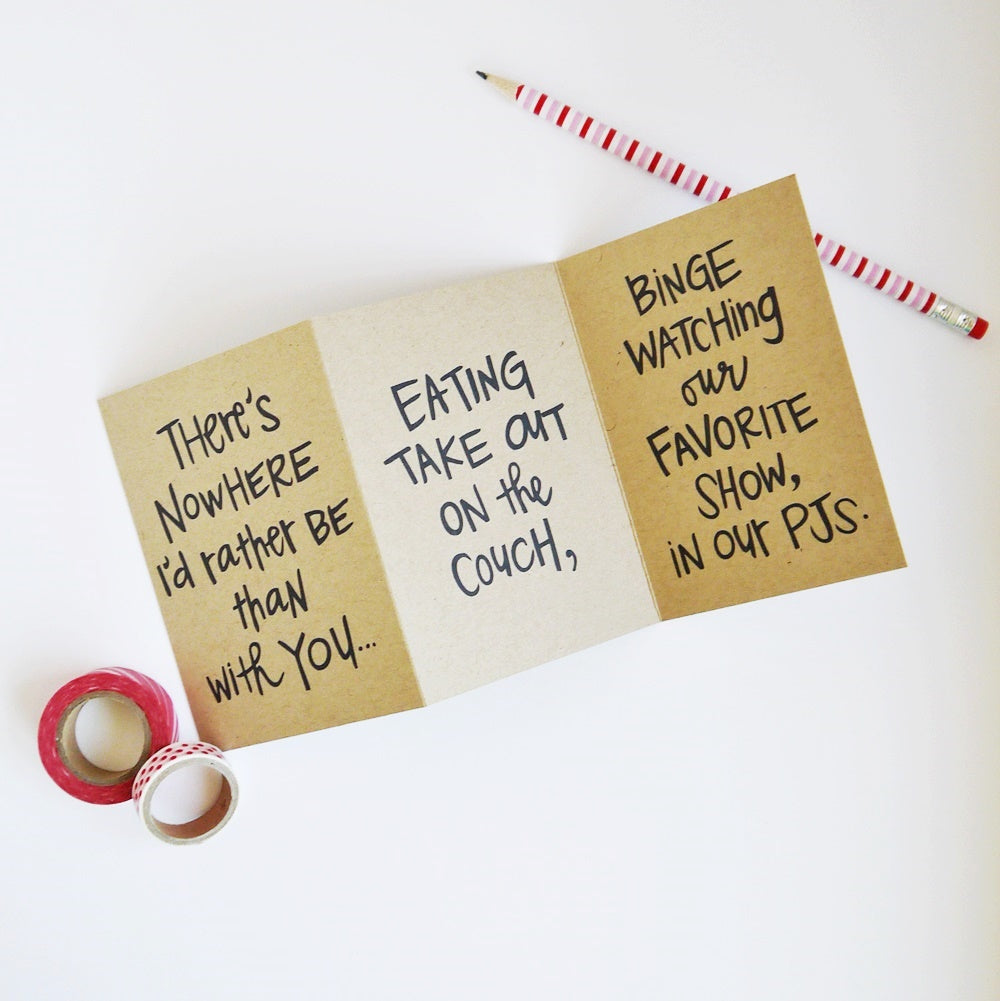 THere's
NOWHERE
I'd rather BE
thaN
with YOU...
EATING
TAKE OUT
ON the
COUCH,
BiNGE
WATCHing
our
FAVORITE
SHOW,
iN our PJs.